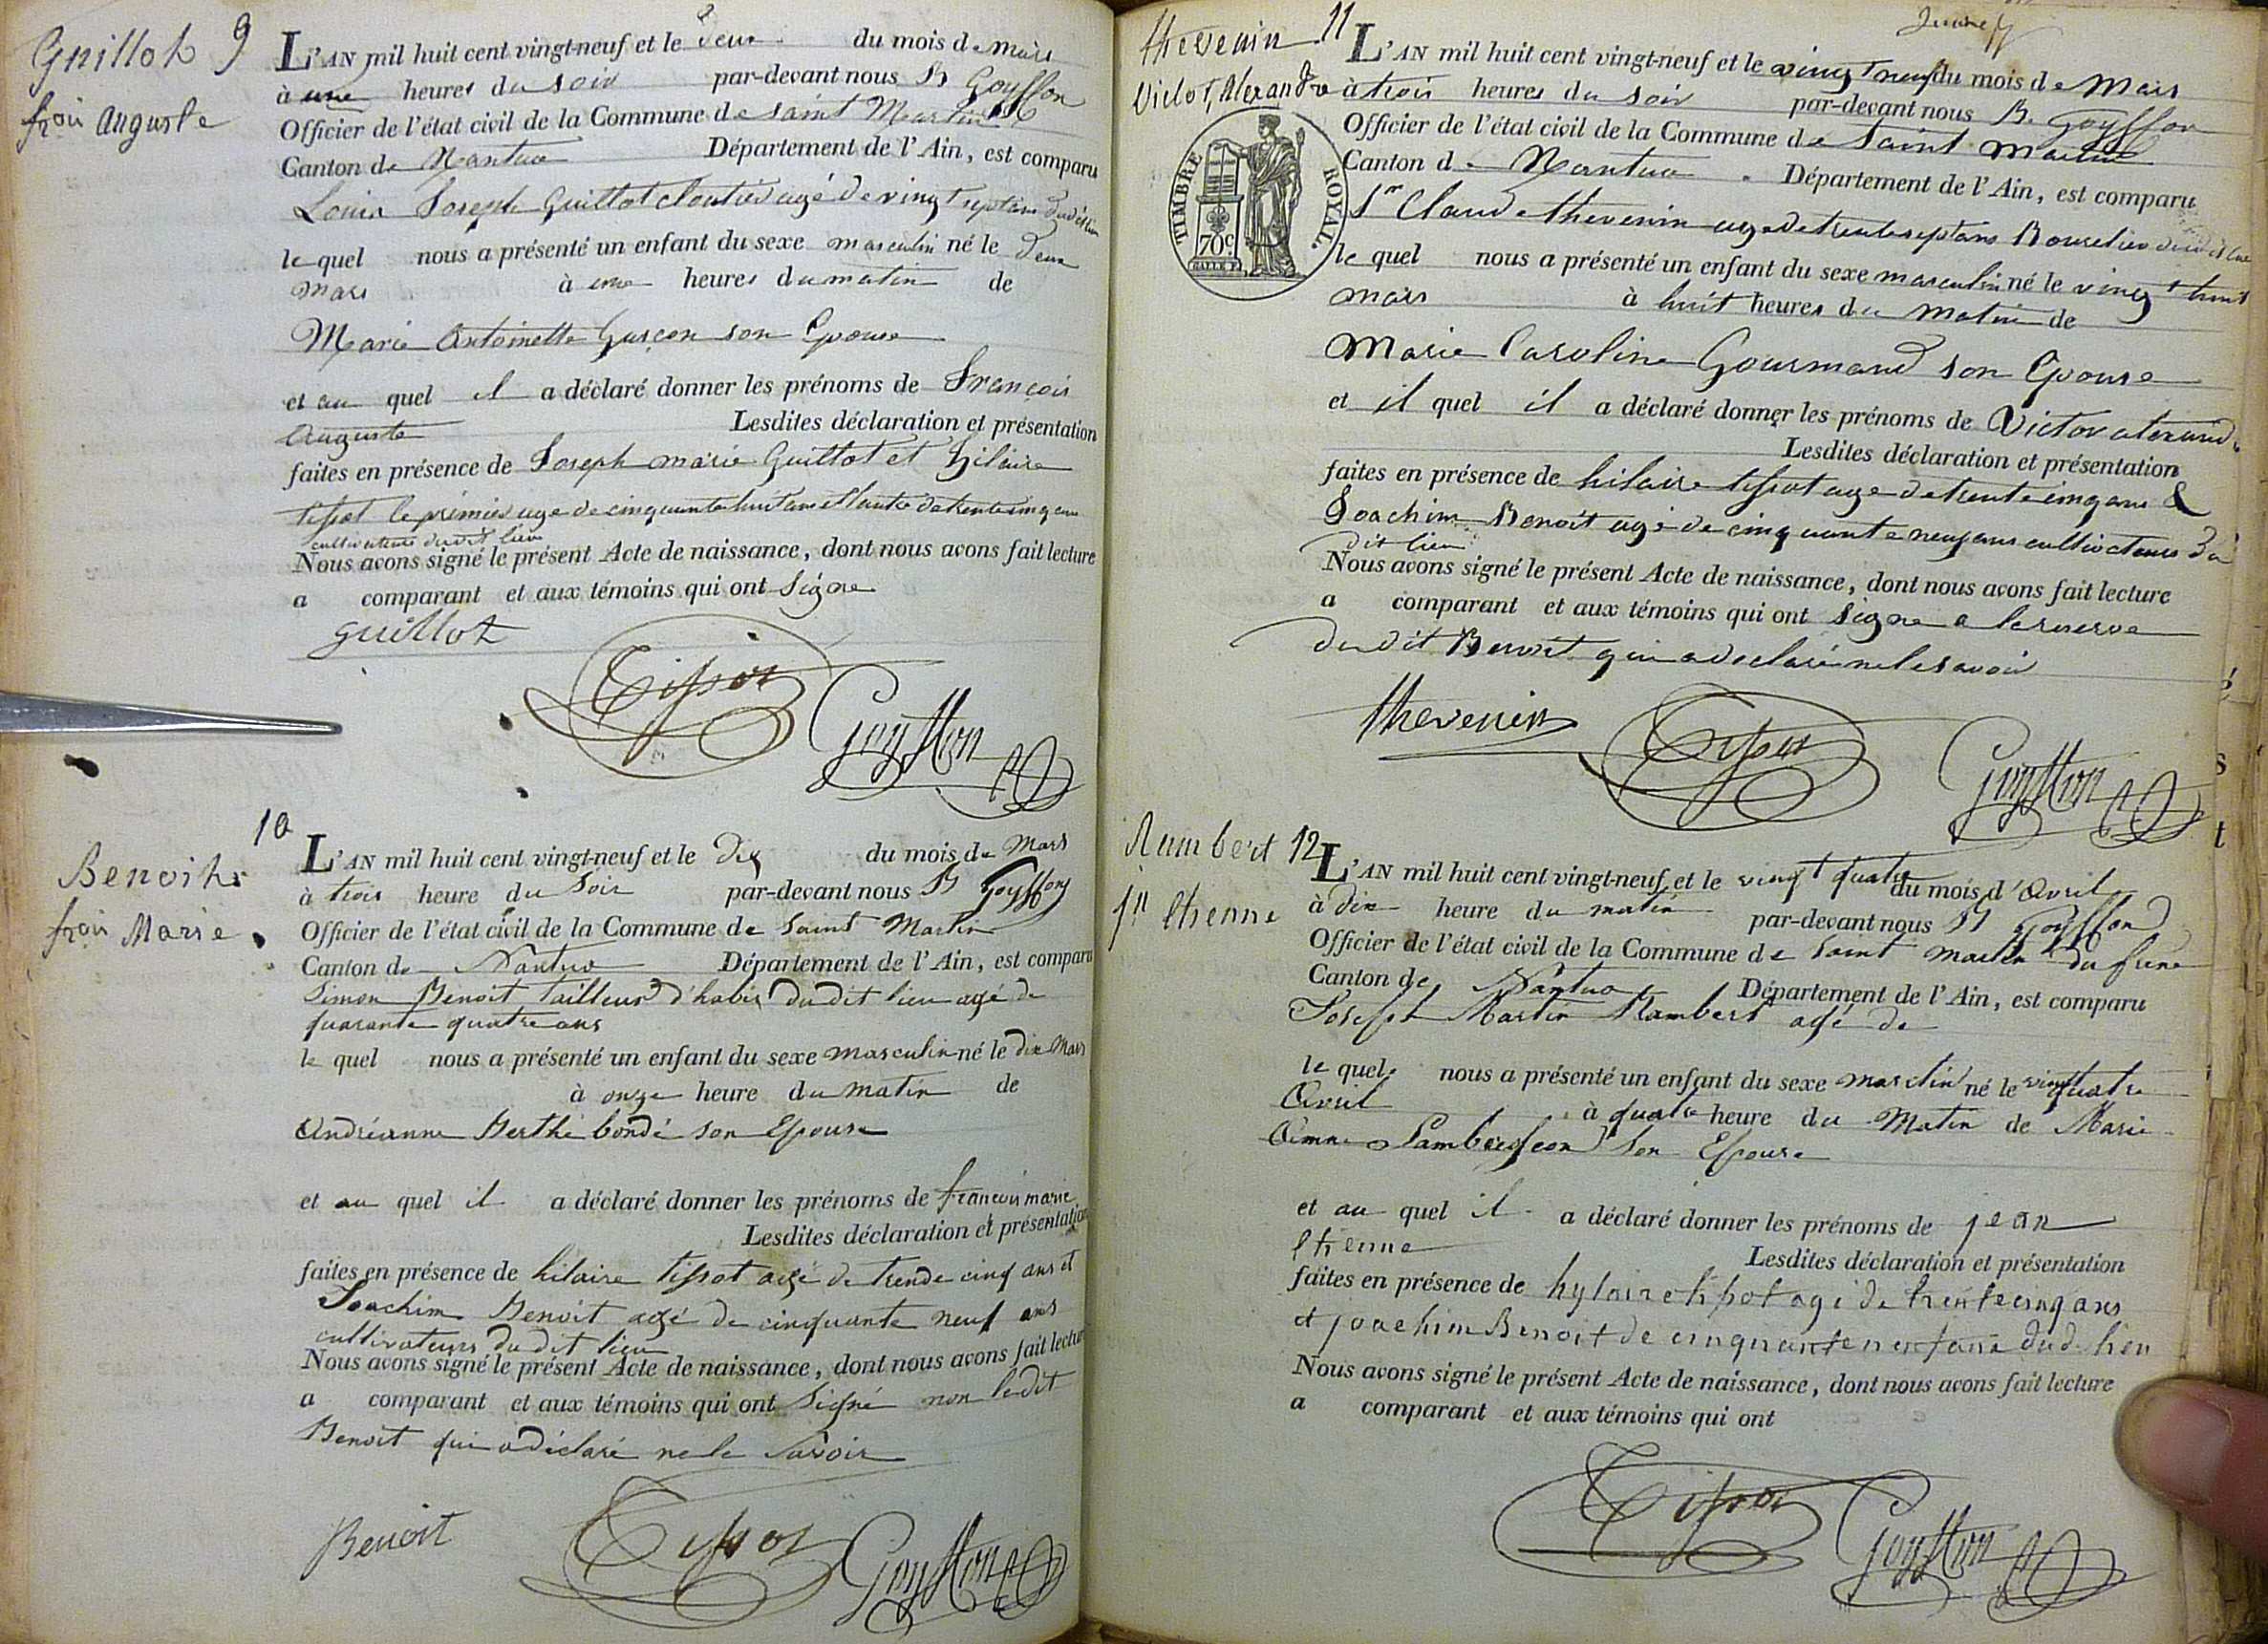 Guillot 9
frois Auguste
L'AN mil huit cent vingt-neuf et le deux du mois de mars
à une heures du soir par-devant nous B Goyffon
Officier de l'état civil de la Commune de saint Martin
Canton de Nantua Département de l'Ain, est comparu
Louis Joseph Guillot cloutier agé de vingt sept ans dudit lieu
le quel nous a présenté un enfant du sexe masculin né le deux
mars à une heures du matin de
Marie Antoinette Gurçon son Epouse
et au quel il a déclaré donner les prénoms de François
Auguste Lesdites déclaration et présentation
faites en présence de Joseph marie Guillot et hilaire
tissot le premier age de cinquante huit ans et lautre de trente cinq ans
cultivateurs dudit lieu
Nous avons signé le présent Acte de naissance, dont nous avons fait lecture
a comparant et aux témoins qui ont signe
guillot
Tissot Goyffon
10
Benoit
frois Marie
L'AN mil huit cent vingt-neuf et le dix du mois de Mars
à trois heure du soir par-devant nous B Goyffon
Officier de l'état civil de la Commune de saint Martin
Canton de Nantua Département de l'Ain, est comparu
Simon Benoit tailleur d'habis du dit lieu agé de
quarante quatre ans
le quel nous a présenté un enfant du sexe masculin né le dix Mars
à onze heure du matin de
Andréanne Berthé bondé son Epouse
et au quel il a déclaré donner les prénoms de francois marie
Lesdites déclaration et présentation
faites en présence de hilaire tissot agé de trende cinq ans et
Joachim Benoit agé de cinquante neuf ans
cultivateurs du dit lieu
Nous avons signé le présent Acte de naissance, dont nous avons fait lecture
a comparant et aux témoins qui ont signé non ledit
Benoit qui a déclaré ne le savoir
Benoit Tissot Goyffon
thevenin 11
Victor, Alexandre
TIMBRE ROYAL.
70c
L'AN mil huit cent vingt-neuf et le vingt neuf du mois de Mars
à trois heures du soir par-devant nous B. Goyffon
Officier de l'état civil de la Commune de Saint Martin
Canton de Nantua Département de l'Ain, est comparu
Sr Claude thevenin age de trente sept ans Bourelier dudit lieu
le quel nous a présenté un enfant du sexe masculin né le vingt huit
mars à huit heures du matin de
Marie Caroline Gourmand son Epouse
et il quel il a déclaré donner les prénoms de Victor alexandre
Lesdites déclaration et présentation
faites en présence de hilaire tissot age de trente cinq ans &
Joachim Benoit agé de cinquante neuf ans cultivateurs du
dit lieu
Nous avons signé le présent Acte de naissance, dont nous avons fait lecture
a comparant et aux témoins qui ont signe a la reserve
du dit Benoit qui a declaré ne le savoir
thevenin Tissot Goyffon
Rambert 12
jn Etienne
L'AN mil huit cent vingt-neuf et le vingt quatre du mois d'Avril
à dix heure du matin par-devant nous B Goyffon
Officier de l'état civil de la Commune de saint martin du frene
Canton de Nantua Département de l'Ain, est comparu
Joseph Martin Rambert agé de
le quel nous a présenté un enfant du sexe masculin né le vingt quatre
Avril à quatre heure du Matin de Marie
son Epouse
et au quel il a déclaré donner les prénoms de jean
Etienne Lesdites déclaration et présentation
faites en présence de hylaire tissot agé de trente cinq ans
et joachim Benoit de cinquante neuf ans dud. lieu
Nous avons signé le présent Acte de naissance, dont nous avons fait lecture
a comparant et aux témoins qui ont
Tissot Goyffon